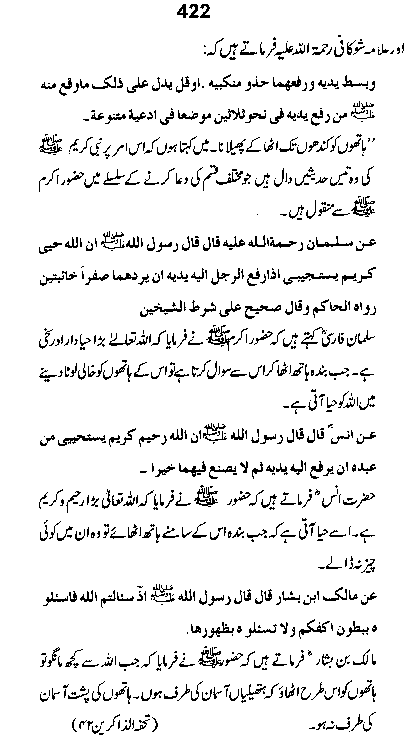 422
اور علامہ شوکانی رحمۃ اللہ علیہ فرماتے ہیں کہ:
وبسط يديه ورفعهما حذو منكبيه . اوقل يدل على ذلك ماوقع منه
ﷺ من رفع يديه فى نحو ثلاثين موضعا فى ادعية متنوعة ۔
’’ہاتھوں کو کندھوں تک اٹھا کے پھیلانا۔ میں کہتا ہوں کہ اس امر پر نبی کریم ﷺ
کی وہ تیس حدیثیں دال ہیں جو مختلف قسم کی دعا کرنے کے سلسلے میں حضور اکرم
ﷺ سے منقول ہیں۔
عن سلمان رحمة الله عليه قال قال رسول الله ﷺ ان الله حيى
كريم يستجيبى اذا رفع الرجل اليه يديه ان يردهما صفراً خائبتين
رواه الحاكم وقال صحيح على شرط الشيخين
سلمان فارسیؓ کہتے ہیں کہ حضور اکرم ﷺ نے فرمایا کہ اللہ تعالےٰ بڑا حیادار اور سخی
ہے۔ جب بندہ ہاتھ اٹھا کر اس سے سوال کرتا ہے تو اس کے ہاتھوں کو خالی لوٹا دینے
میں اللہ کو حیا آتی ہے۔
عن انسؓ قال قال رسول الله ﷺ ان الله رحيم كريم يستحيى من
عبده ان يرفع اليه يديه ثم لا يصنع فيهما خيرا ۔
حضرت انسؓ فرماتے ہیں کہ حضور ﷺ نے فرمایا کہ اللہ تعالیٰ بڑا رحیم و کریم
ہے۔ اسے حیا آتی ہے کہ جب بندہ اس کے سامنے ہاتھ اٹھائے تو وہ ان میں کوئی
چیز نہ ڈالے۔
عن مالك ابن بشار قال قال رسول الله ﷺ اذا سئالتم الله فاسئلو
ه ببطون اكفكم ولا تسئلو ه بظهورها.
مالک بن بشارؓ فرماتے ہیں کہ حضور ﷺ نے فرمایا کہ جب اللہ سے کچھ مانگو تو
ہاتھوں کو اس طرح اٹھاؤ کہ ہتھیلیاں آسمان کی طرف ہوں۔ ہاتھوں کی پشت آسمان
کی طرف نہ ہو۔ (تحفۃ الذاکرین ۴۲)